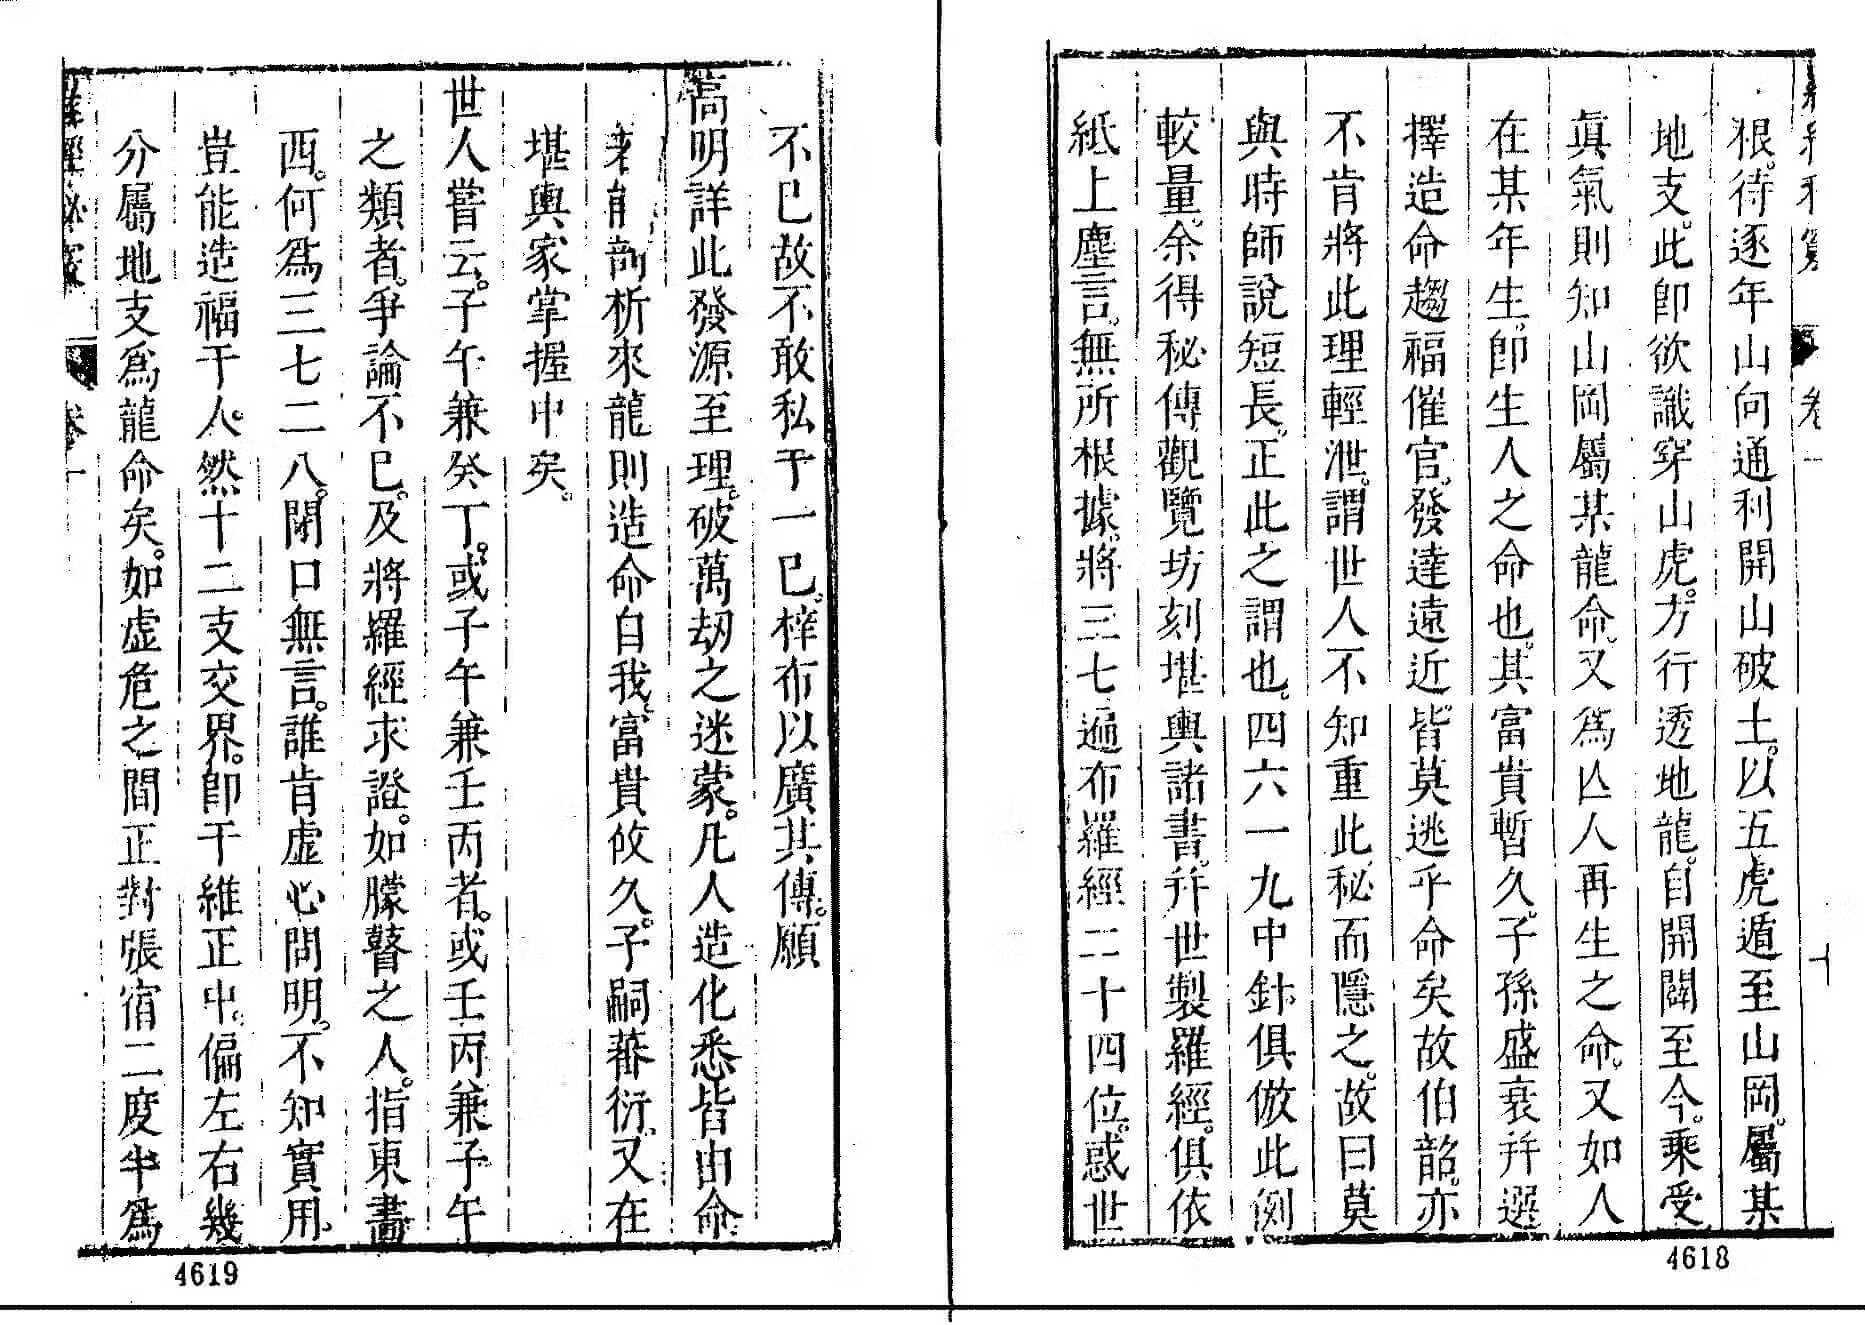 根。待逐年山向通利開山破土。以五虎遁至山岡。屬某
地支。此卽欲識穿山虎。方行透地龍。自開闢至今。乘受
眞氣則知山岡屬某龍命。又爲亾人再生之命。又如人
在某年生。卽生人之命也。其富貴暫久。子孫盛衰幷選
擇造命趨福催官。發達遠近。皆莫逃乎命矣故伯韶。亦
不肯將此理輕泄。謂世人不知重此。秘而隱之。故曰莫
與時師說短長。正此之謂也。四六一九中針。俱倣此例
較量。余得秘傳觀覽坊刻堪輿諸書。幷世製羅經。俱依
紙上塵言。無所根據。將三七遍布羅經二十四位。惑世
卷一
4618
不已故不敢私于一已。梓布以廣其傳。願
高明詳此發源至理。破萬刼之迷蒙。凡人造化悉皆由命
析來龍則造命自我。富貴攸久。子嗣蕃衍。又在
堪輿家掌握中矣。
世人嘗云。子午兼癸丁。或子午兼壬丙者。或壬丙兼子午
之類者。爭論不已。及將羅經求證。如朦瞽之人。指東畵
西。何爲三七二八。閉口無言。誰肯虛心問明。不知實用。
豈能造福于人。然十二支交界。卽干維正中。偏左右幾
分屬地支爲龍命矣。如虛危之間正對張宿二度半爲
卷一
4619